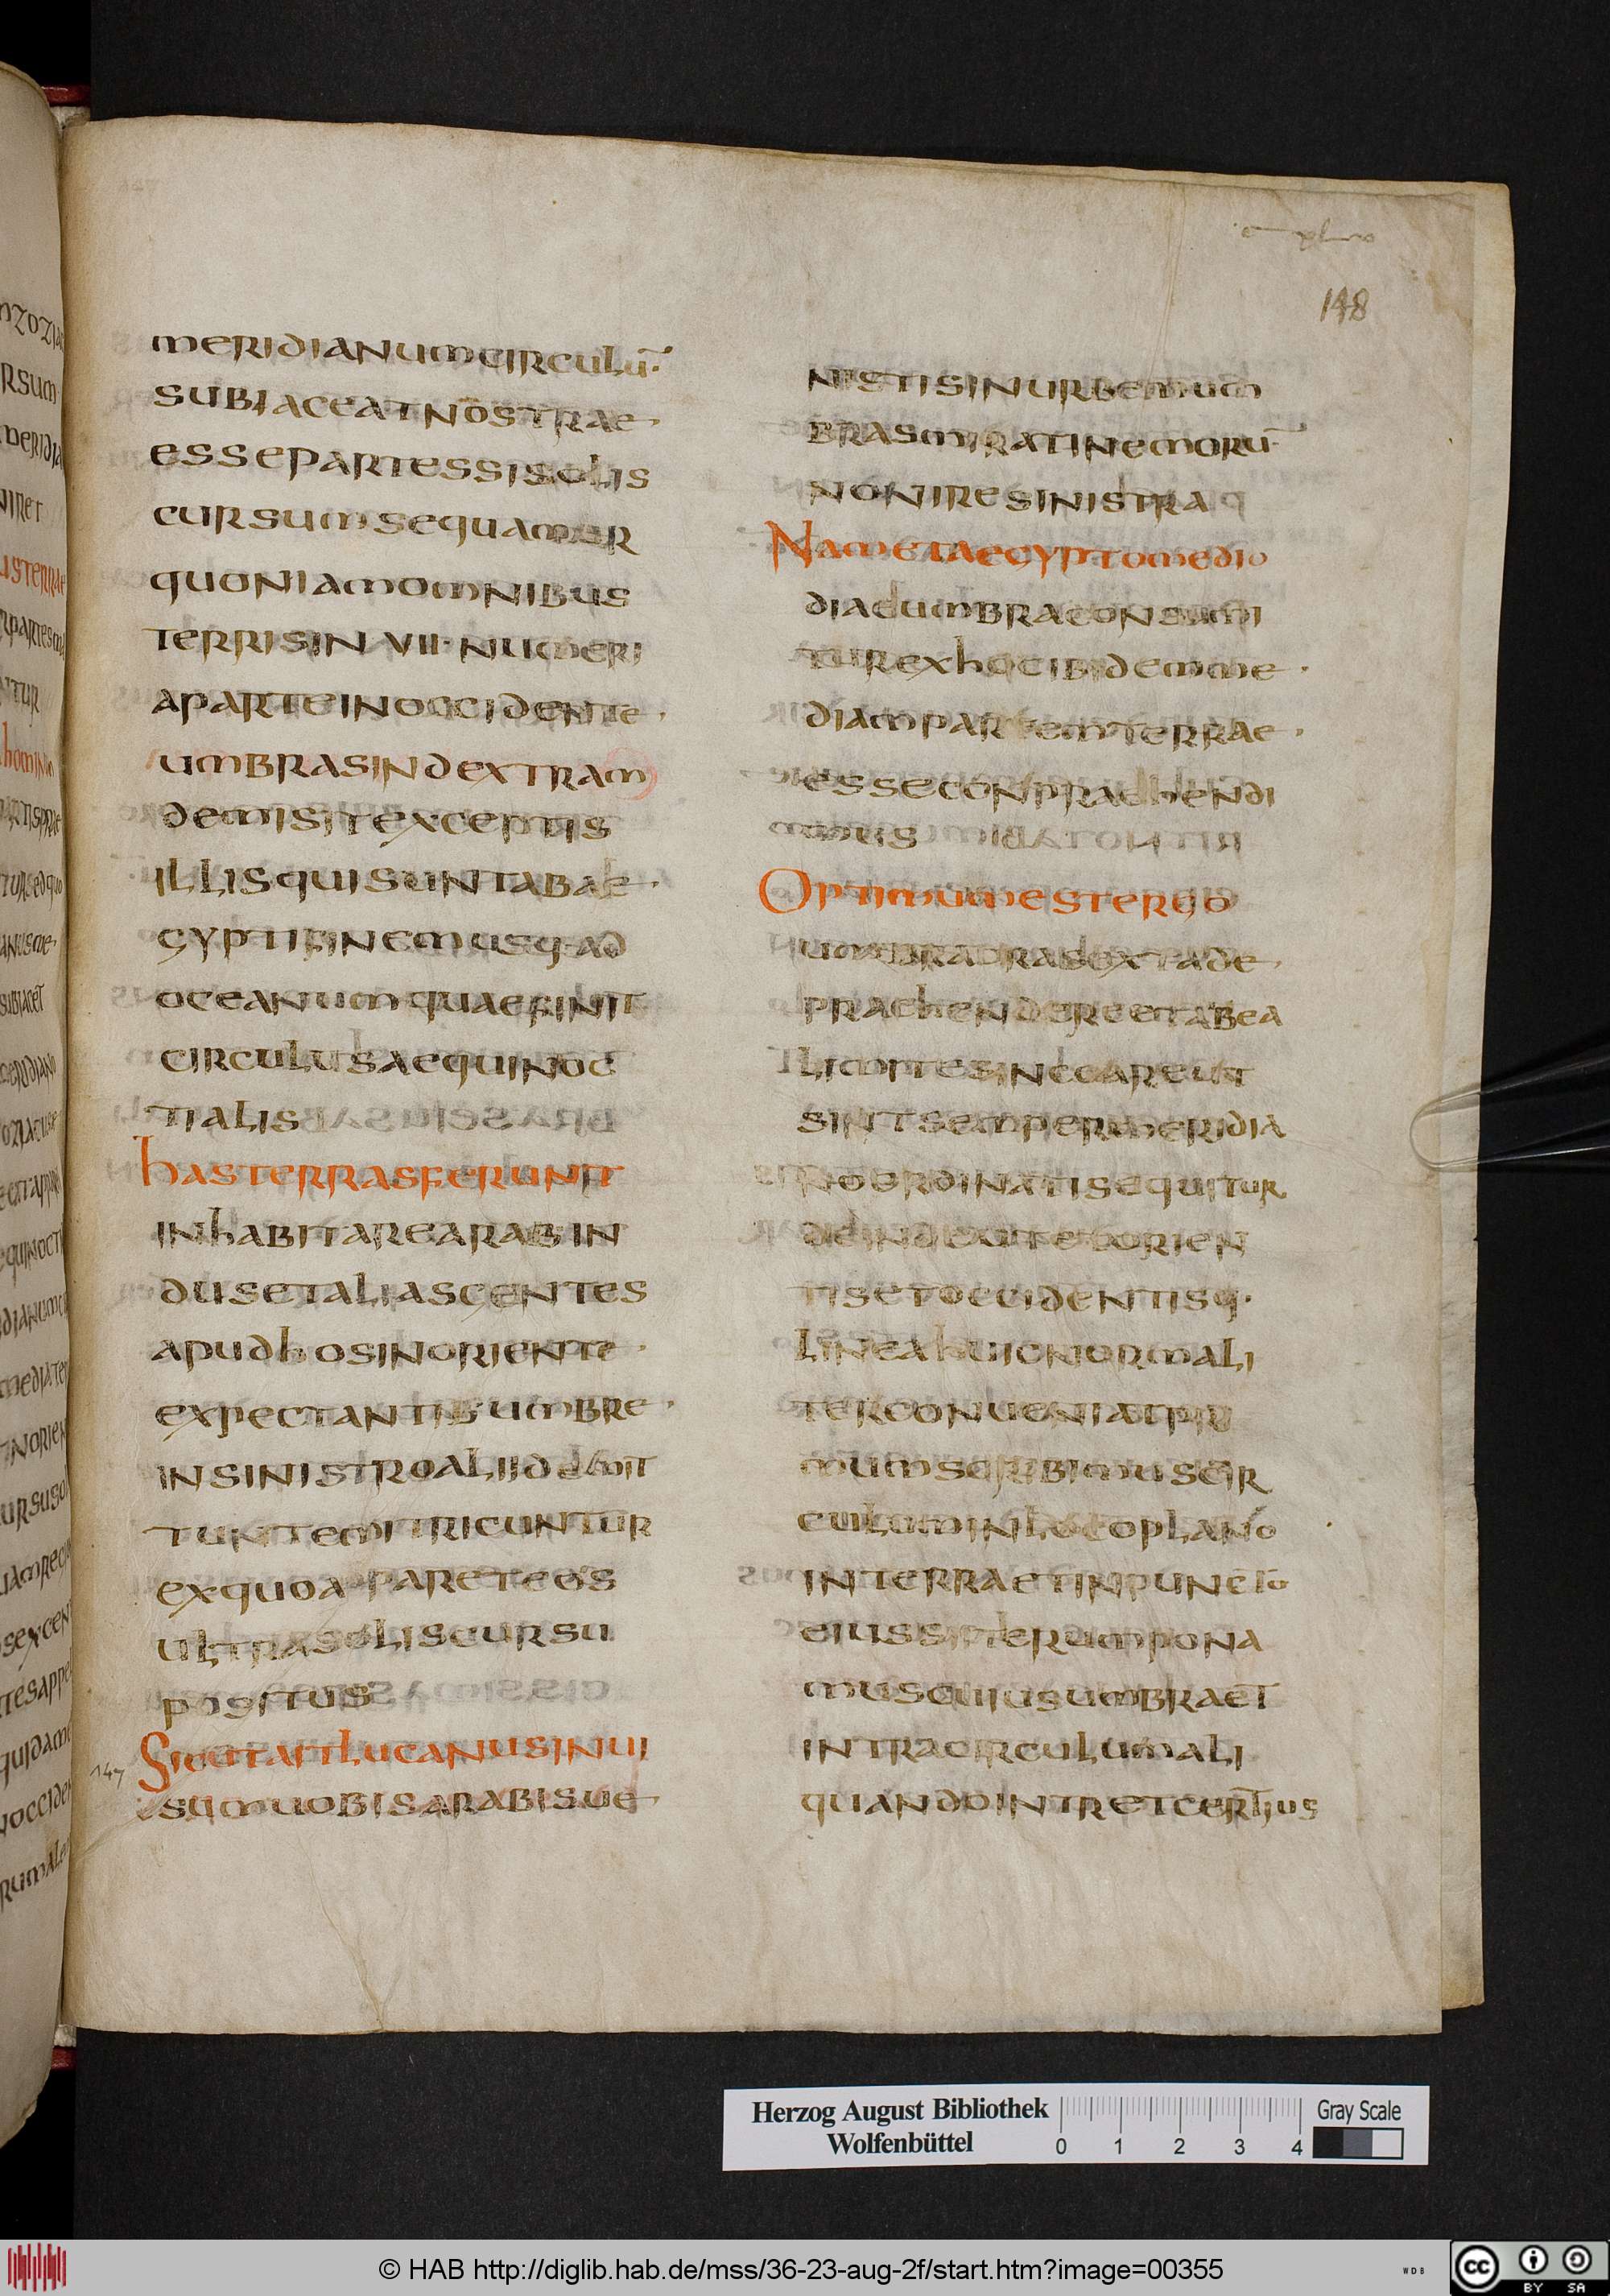 148
MERIDIANUMCIRCULŪ·
SUBIACEATNOSTRAE
ESSEPARTESSISOLIS
CURSUMSEQUAMUR
QUONIAMOMNIBUS
TERRISINVII·NUMERI
APARTEINOCCIDENTE
UMBRASINDEXTRAM
DEMISITEXCEPTIS
ILLISQUISUNTABAE
GYPTIFINEMUSQ·AD
OCEANUMQUAEFINIT
CIRCULUSAEQUINOC
TIALIS
HASTERRASFERUNT
INHABITAREARABIN
DUSETALIASGENTES
APUDHOSINORIENTE
EXPECTANTIB·UMBRE
INSINISTROALIIDEMIT
TUNTEMITRICUNTUR
EXQUOAPARETEOS
ULTRASOLISCURSU
POSITUS
SICUTAITLUCANUSINUI
SUMUOBISARABISUE
147
NISTISINURBEMUM
BRASMIRATINEMORŪ
NONIRESINISTRA
NAMETAEGYPTOMEDIO
DIAEUMBRACONSUMI
TUREXHOCIBIDEMME
DIAMPARTEMTERRAE
ESSECONPRAEHENDI
MUS
OPTIMUMESTERGO
UMBRA
PRAEHENDEREETABEA
LIMITESINCOAREUT
SINTSEMPERMERIDIA
NOORDINATISEQUITUR
DEINDEUT
TISETOCCIDENTISQ·
LINEAHUICNORMALI
TERCONUENIATPRI
MUMSCRIBIMUSCIR
CULUMINLOCOPLANO
INTERRAETINPUNCTO
EIUSSCIOTERUMPONA
MUSCUIUSUMBRAET
INTRACIRCULUMALI
QUANDOINTRETCERTIUS
Herzog August Bibliothek
Wolfenbüttel
0 1 2 3 4
Gray Scale
© HAB http://diglib.hab.de/mss/36-23-aug-2f/start.htm?image=00355
WDB
cc BY SA